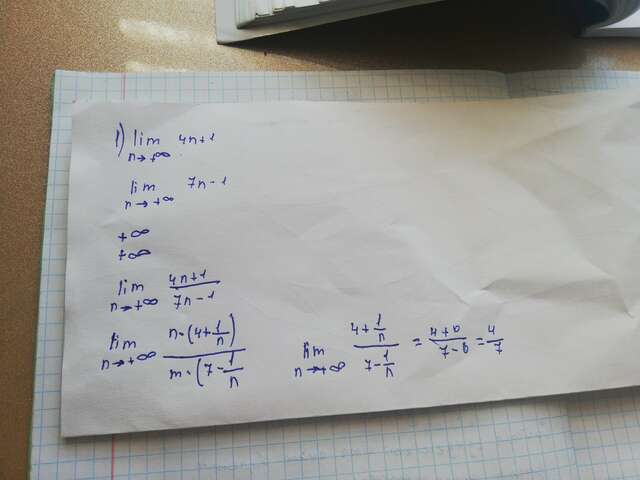 1) lim n→+∞ 4n+1
lim n→+∞ 7n-1
+∞
+∞
lim n→+∞ (4n+1)/(7n-1)
lim n→+∞ n·(4+1/n)/m·(7-1/n
lim n→+∞ (4+1/n)/(7-1/n) = (4+0)/(7-0) = 4/7